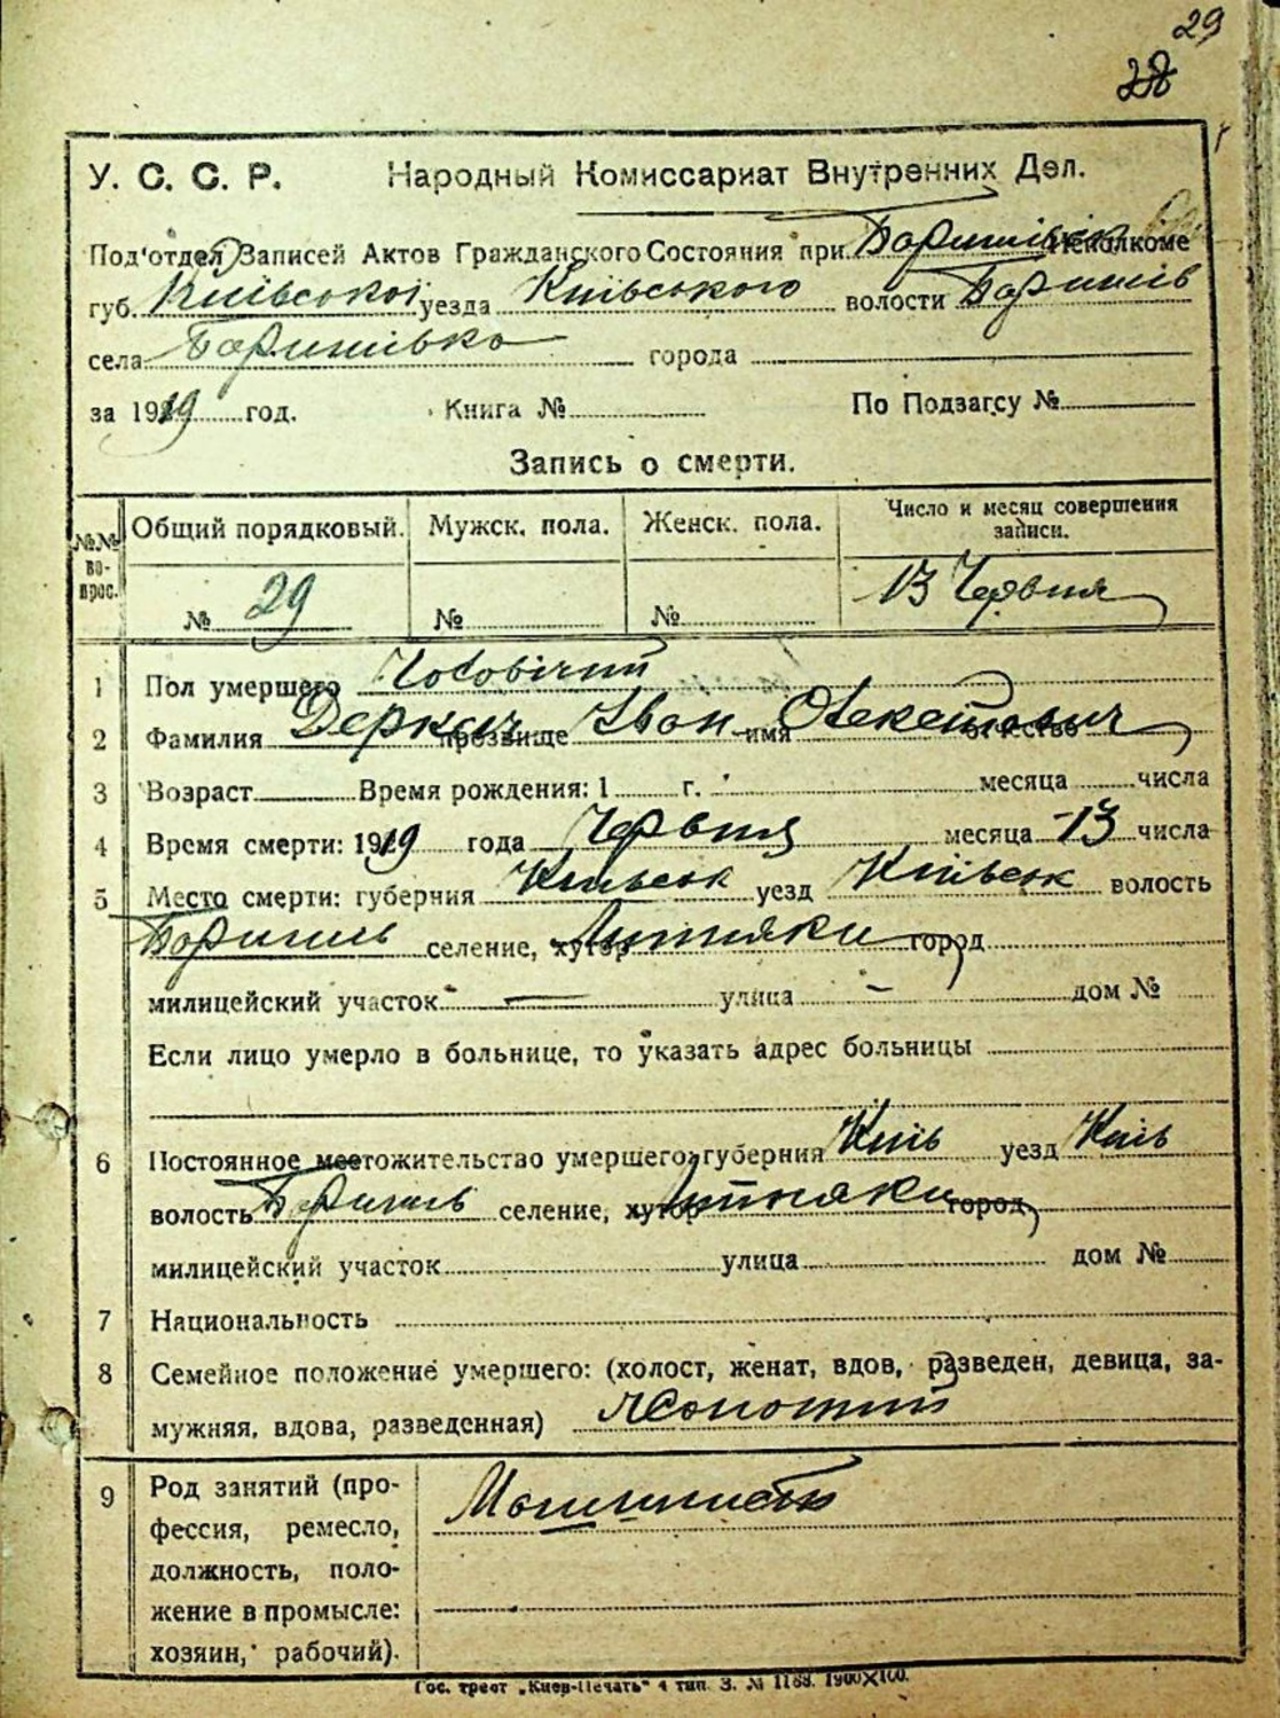 29
28
У. С. С. Р. Народный Комиссариат Внутренних Дел.
Под'отдел Записей Актов Гражданского Состояния при Исполкоме
губ. Київської уезда Київського волости Баришів
села Баришівка города
за 1919 год. Книга № По Подзагсу №
Запись о смерти.
№№ вопрос. Общий порядковый. Мужск. пола. Женск. пола. Число и месяц совершения записи.
№ 29 № № 13 Червня
1 Пол умершего Чоловічий
2 Фамилия Деркач прозвище Іван имя отчество
3 Возраст Время рождения: 1 г. месяца числа
4 Время смерти: 1919 года Червня месяца 13 числа
5 Место смерти: губерния Київськ уезд Київськ волость
Баришів селение, хутор город
милицейский участок — улица — дом №
Если лицо умерло в больнице, то указать адрес больницы
6 Постоянное местожительство умершего: губерния Київ уезд Київ
волость Баришів селение, хутор город
милицейский участок улица дом №
7 Национальность
8 Семейное положение умершего: (холост, женат, вдов, разведен, девица, за-
мужняя, вдова, разведенная) Жонотий
9 Род занятий (про- Машинист
фессия, ремесло,
должность, поло-
жение в промысле:
хозяин, рабочий).
Гос. трест „Киев-Печать" 4 тип. З. № 1188. 1900X100.